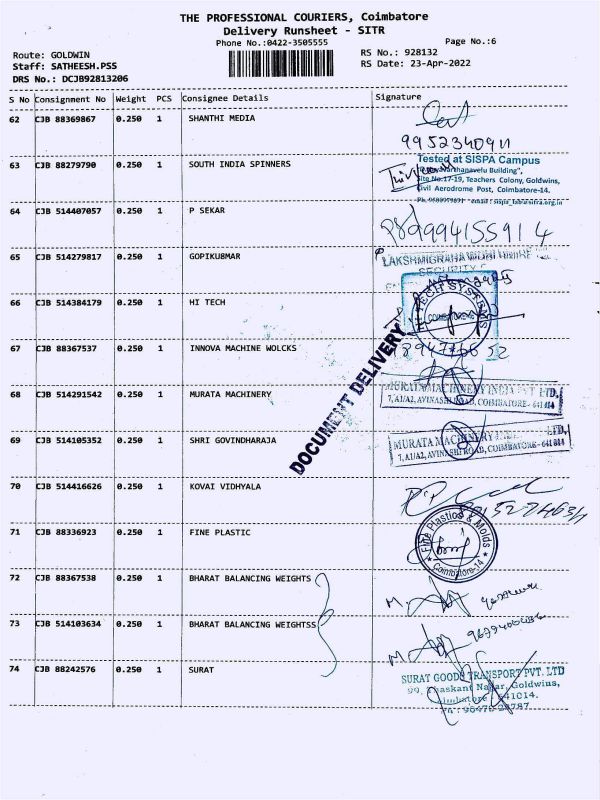 THE PROFESSIONAL COURIERS, Coimbatore
Delivery Runsheet - SITR
Phone No.:0422-3505555
Page No.:6
Route: GOLDWIN
RS No.: 928132
Staff: SATHEESH.PSS
RS Date: 23-Apr-2022
DRS No.: DCJB92813206
S No Consignment No Weight PCS Consignee Details Signature
62 CJB 88369867 0.250 1 SHANTHI MEDIA
63 CJB 88279790 0.250 1 SOUTH INDIA SPINNERS
Tested at SISPA Campus
Site No.17-19, Teachers Colony, Goldwins,
Civil Aerodrome Post, Coimbatore-14.
64 CJB 514407057 0.250 1 P SEKAR
65 CJB 514279817 0.250 1 GOPIKUBMAR
SECURITY
66 CJB 514384179 0.250 1 HI TECH
TECH SYSTEMS
COIMBATORE
67 CJB 88367537 0.250 1 INNOVA MACHINE WOLCKS
DOCUMENT DELIVERY
68 CJB 514291542 0.250 1 MURATA MACHINERY
MURATA MACHINERY INDIA PVT LTD.
7, A1/A2, AVINASHI ROAD, COIMBATORE - 641 014
69 CJB 514105352 0.250 1 SHRI GOVINDHARAJA
MURATA MACHINERY LTD.
7, A1/A2, AVINASHI ROAD, COIMBATORE - 641 014
70 CJB 514416626 0.250 1 KOVAI VIDHYALA
71 CJB 88336923 0.250 1 FINE PLASTIC
Fine Plastics & Molds
Coimbatore-14
72 CJB 88367538 0.250 1 BHARAT BALANCING WEIGHTS
73 CJB 514103634 0.250 1 BHARAT BALANCING WEIGHTSS
74 CJB 88242576 0.250 1 SURAT
SURAT GOODS TRANSPORT PVT. LTD
Nagar, Goldwins,